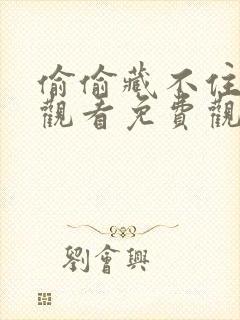 偷偷藏不住
觀看免費觀
劉會興